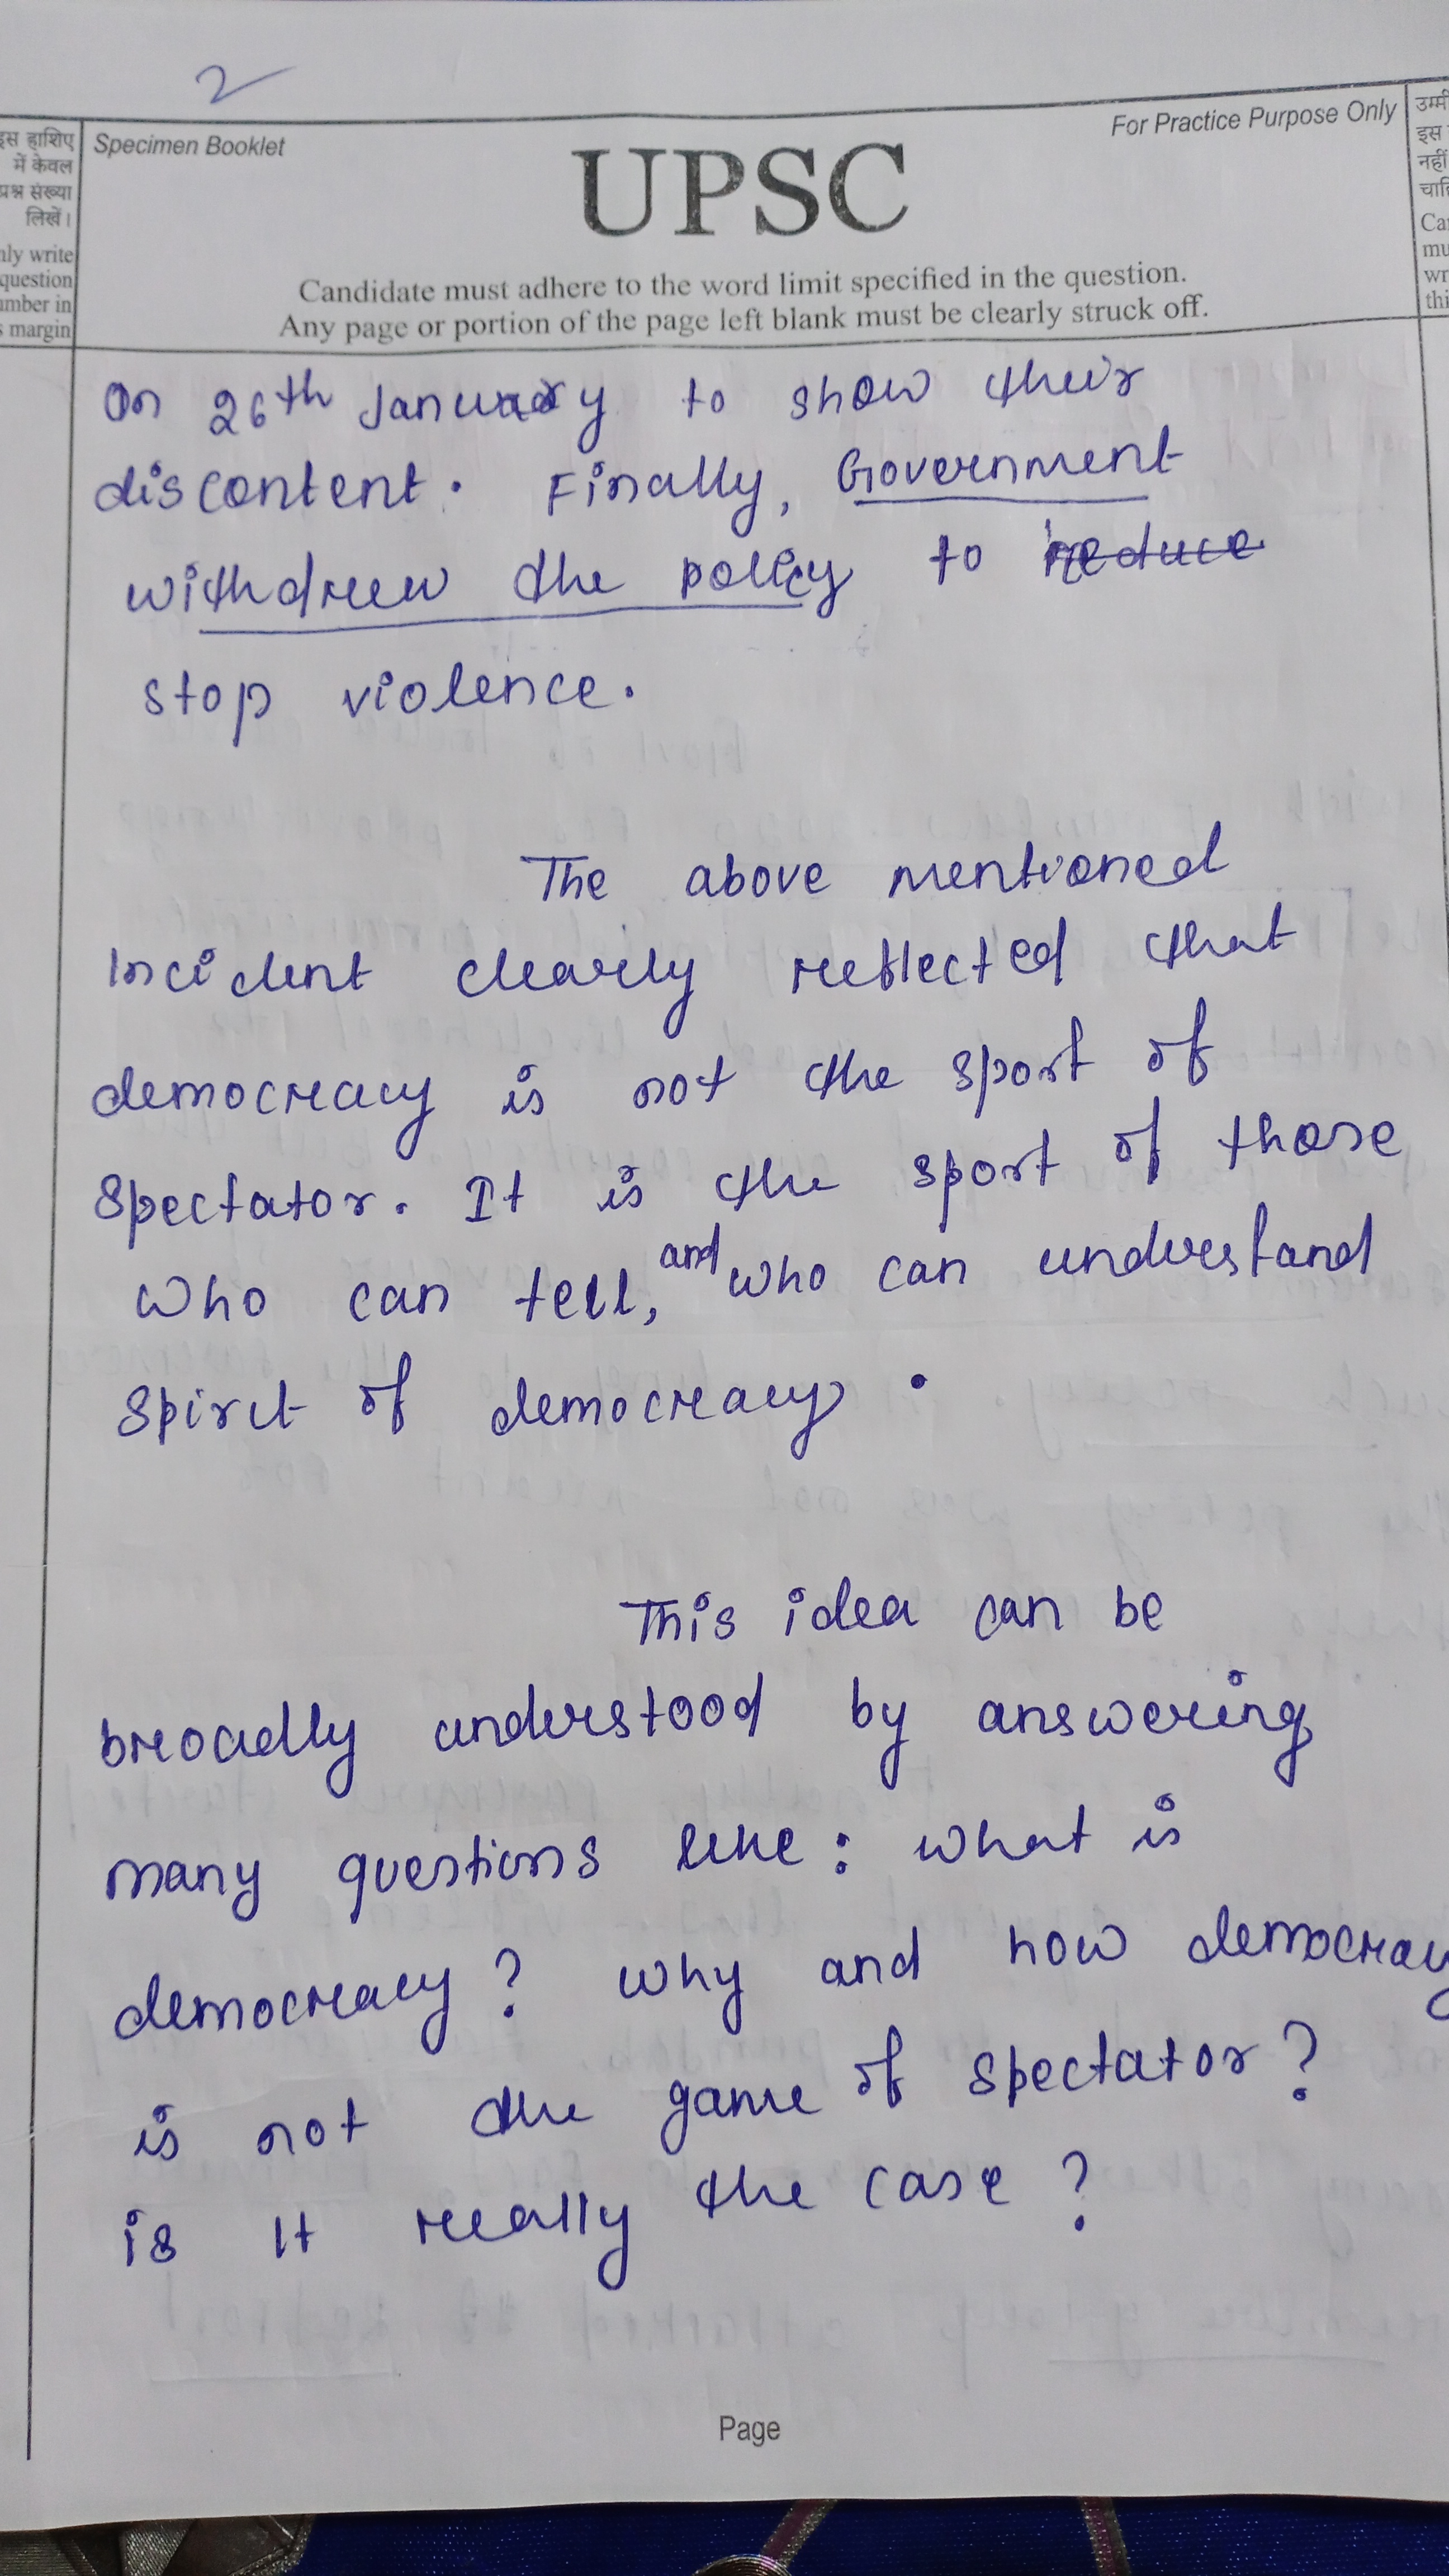 2
इस हाशिए
में केवल
प्रश्न संख्या
लिखें।
nly write
question
umber in
s margin
Specimen Booklet
For Practice Purpose Only
UPSC
Candidate must adhere to the word limit specified in the question.
Any page or portion of the page left blank must be clearly struck off.
उम्मी
इस
नहीं
चाहि
Ca
mu
wr
thi
On 26th January to show their
discontent. Finally, Government
withdrew the policy to reduce
stop violence.
The above mentioned
Incident clearly reflected that
democracy is not the sport of
Spectator. It is the sport of those
who can tell, and who can understand
Spirit of democracy.
This idea can be
broadly understood by answering
many questions like: what is
democracy? why and how democracy
is not the game of spectator?
is it really the case?
Page